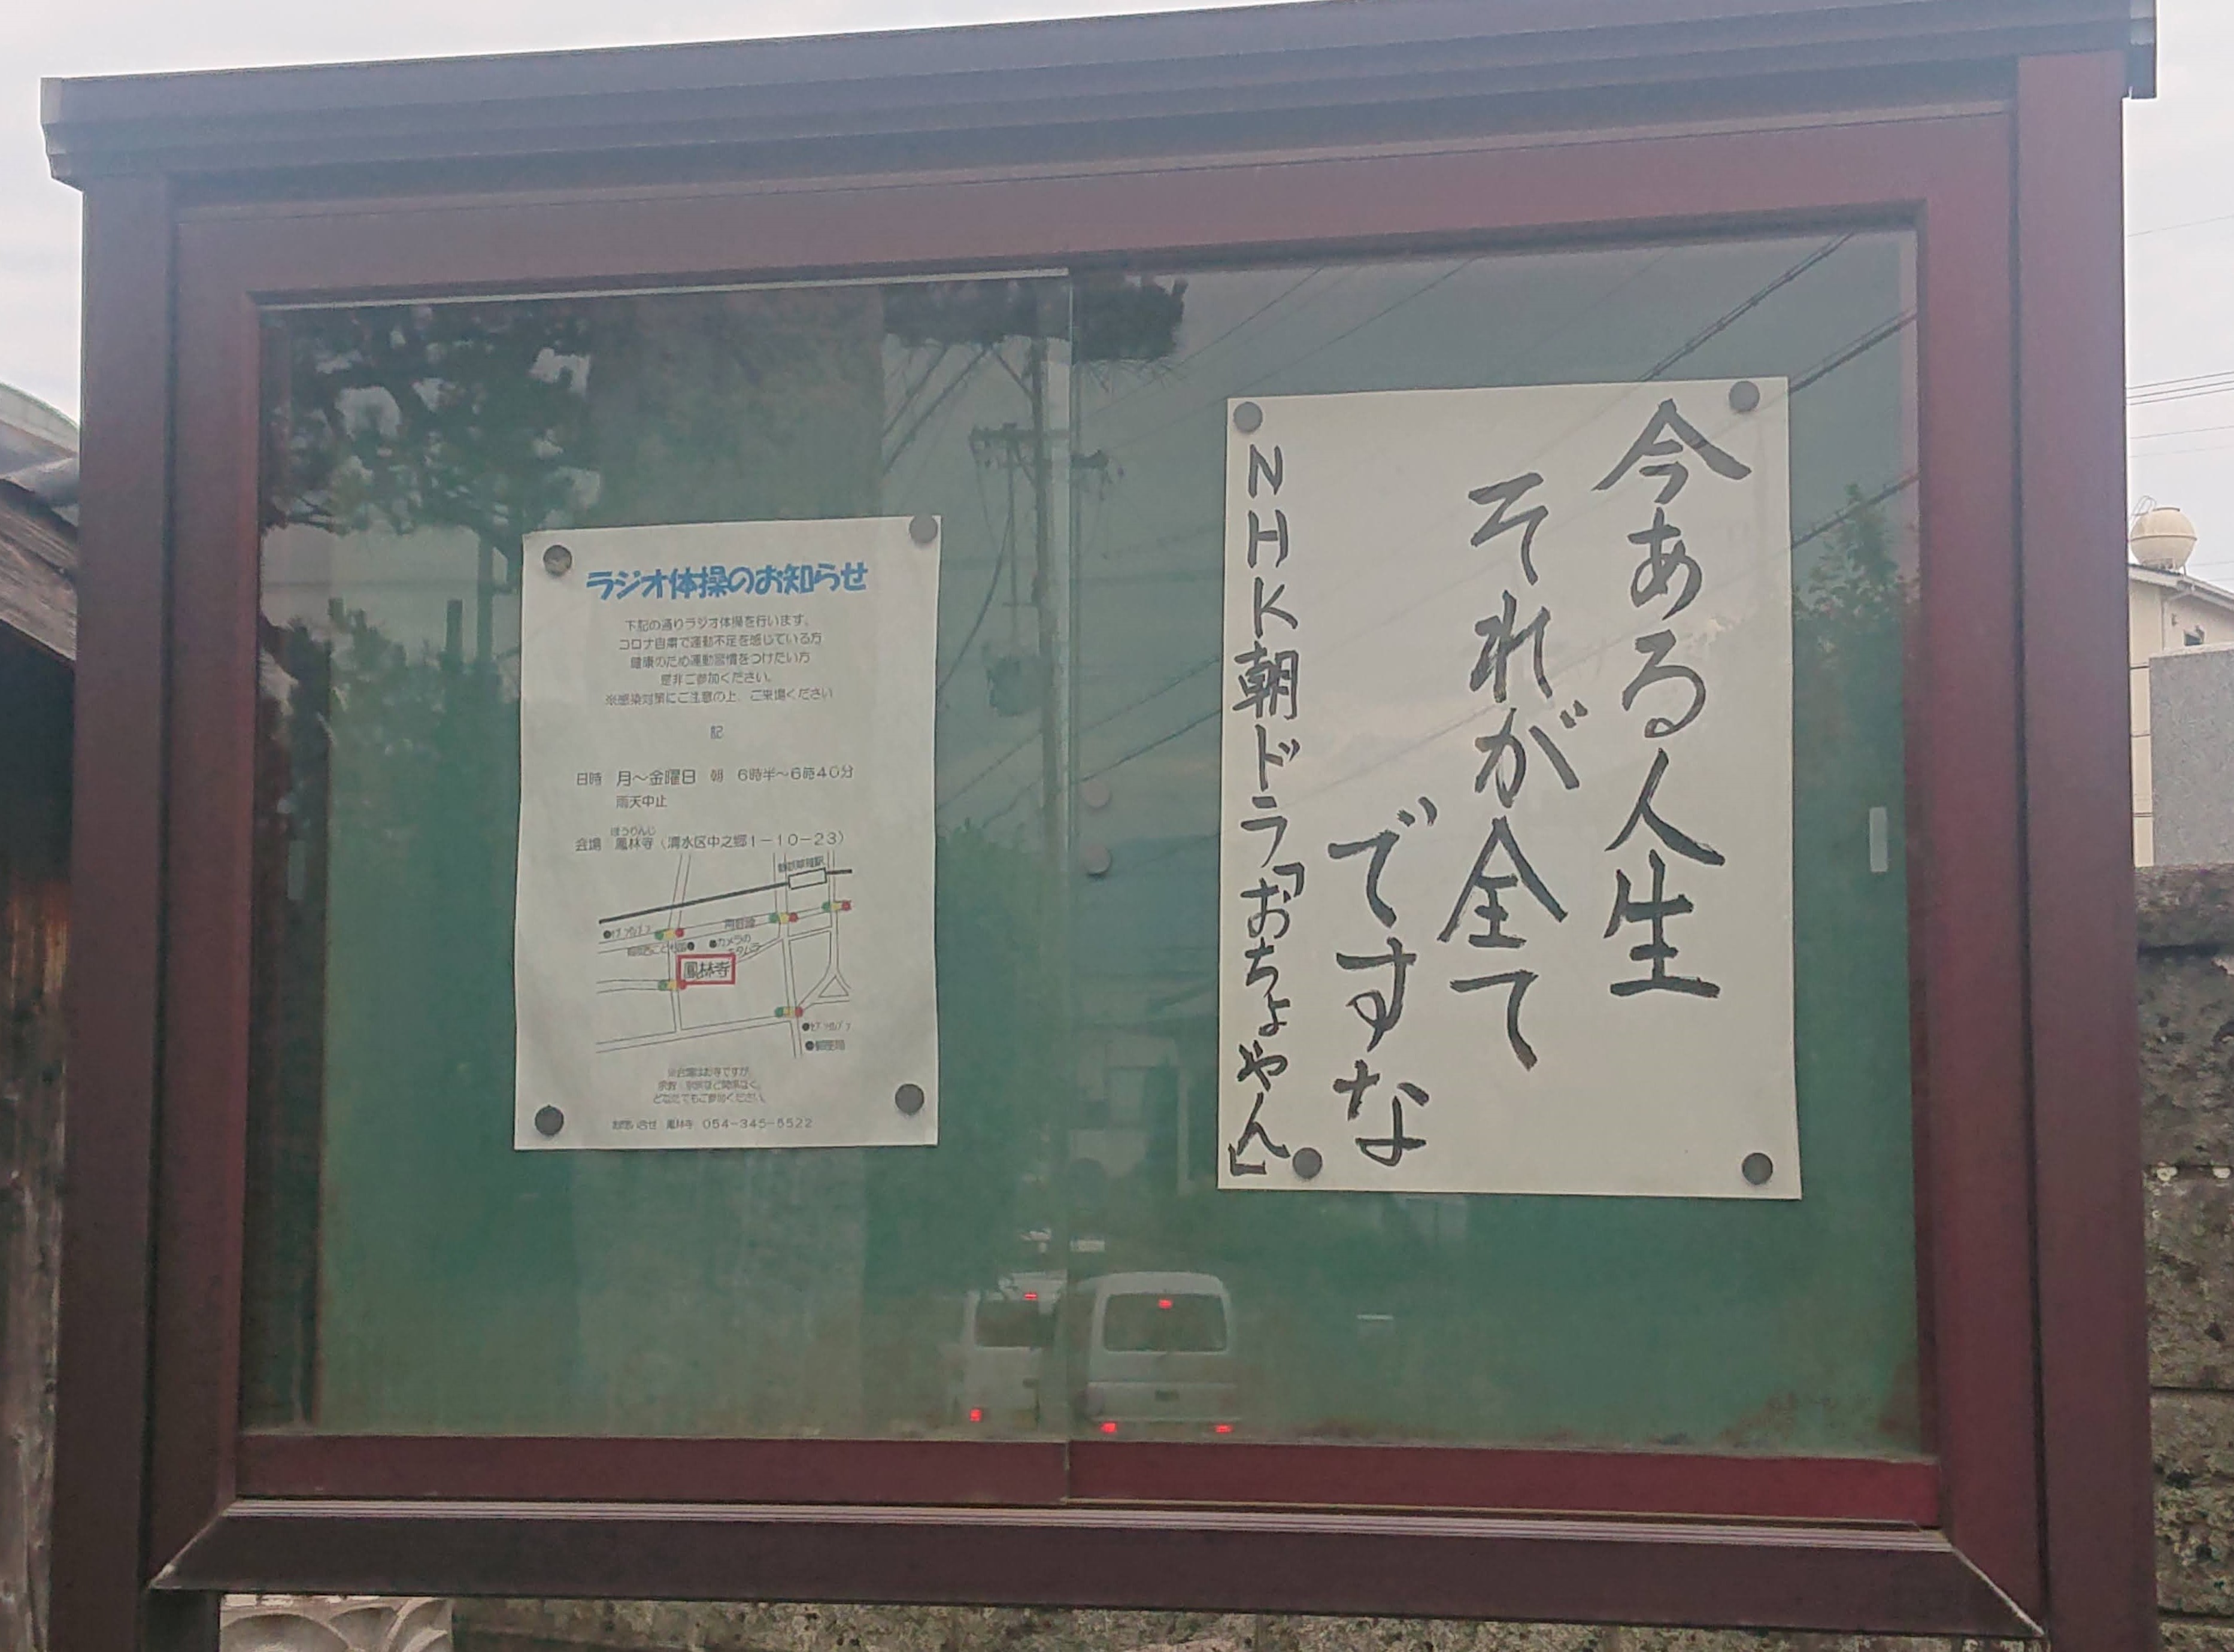 今ある人生
それが全て
ですな
NHK朝ドラ「おちょやん」
ラジオ体操のお知らせ
下記の通りラジオ体操を行います。
コロナ自粛で運動不足を感じている方
健康のため運動習慣をつけたい方
是非ご参加ください。
※感染対策にご注意の上、ご来場ください
記
日時 月～金曜日 朝 6時半～6時40分
雨天中止
ほうりんじ
会場 鳳林寺（清水区中之郷1－10－23）
南幹線
ｾﾌﾞﾝｲﾚﾌﾞﾝ
カメラの
キタムラ
鳳林寺
ｾﾌﾞﾝｲﾚﾌﾞﾝ
郵便局
※会場はお寺ですが、
宗教・宗派など関係なく、
どなたでもご参加ください。
お問い合せ 鳳林寺 054－345－5522